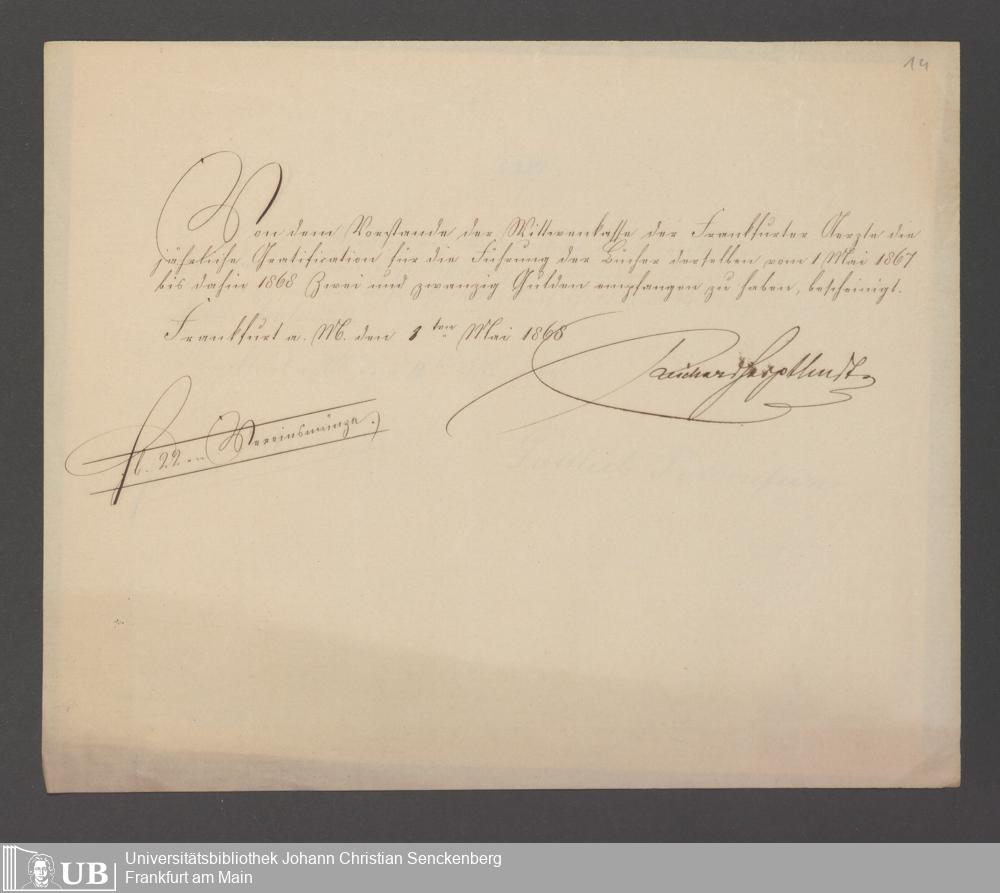 14
Von dem Vorstande der Wittwenkasse der Frankfurter Aerzte die
jährliche Gratification für die Führung der Bücher derselben vom 1 Mai 1867
bis dahin 1868 Zwei und zwanzig Gulden empfangen zu haben, bescheinigt.
Frankfurt a. M. den 1ten Mai 1868
fl. 22.- Vereinsmünze.
UB
Universitätsbibliothek Johann Christian Senckenberg
Frankfurt am Main